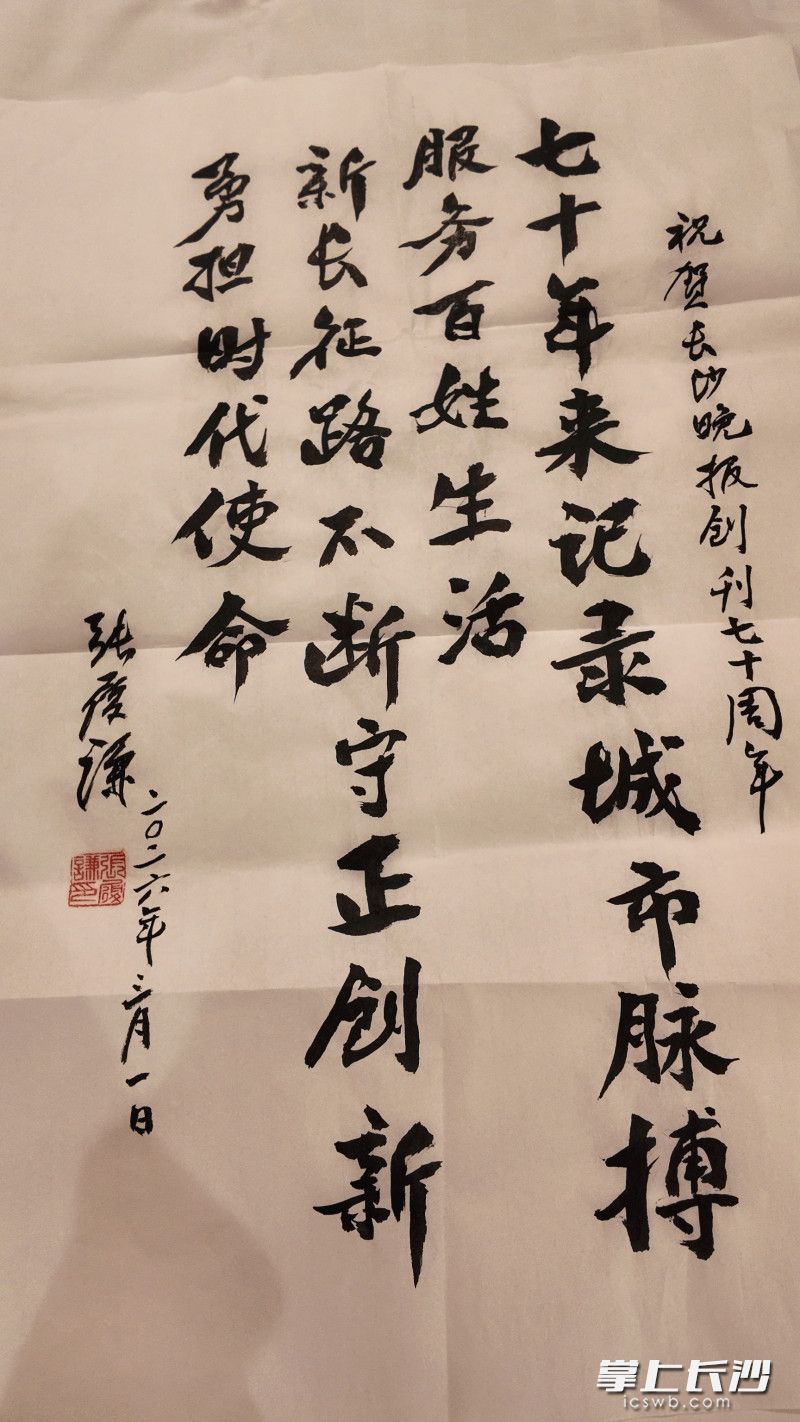 祝贺长沙晚报创刊七十周年
七十年来记录城市脉搏
服务百姓生活
新长征路不断守正创新
勇担时代使命
张厚谦
二〇二六年三月一日
掌上长沙
icswb.com